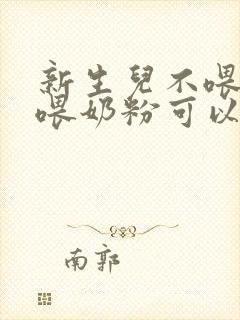 新生兒不喂
喂奶粉可以
南郭